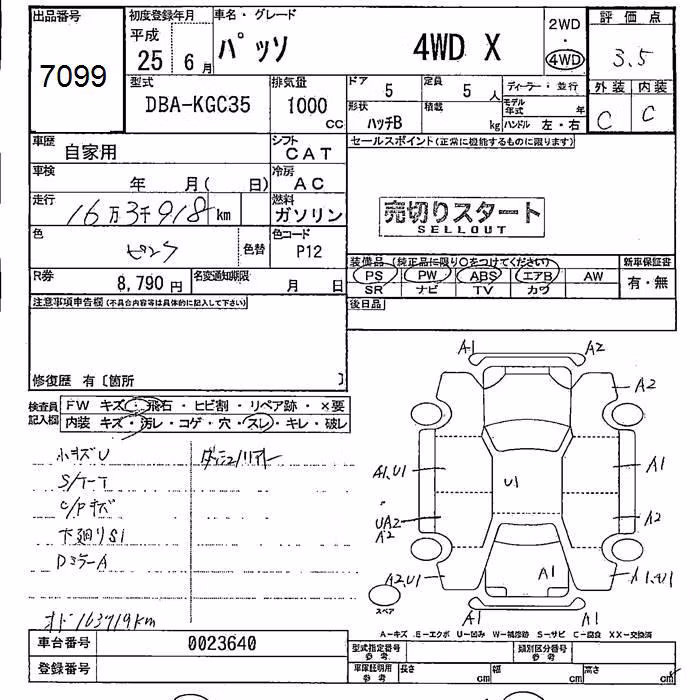 出品番号 初度登録年月 車名・グレード 2WD 評価点
7099 平成 25 6月 パッソ 4WD X ・ 4WD 3.5
型式 排気量 ドア 5 定員 5人 ディーラー・並行 外装 内装
DBA-KGC35 1000cc 形状 ハッチB 積載 kg モデル年式 年 ハンドル 左・右 C C
車歴 自家用 シフト CAT セールスポイント(正常に機能するものに限ります)
車検 年 月( 日) 冷房 AC
走行 16万3千918km 燃料 ガソリン 売切りスタート
SELLOUT
色 ピンク 色替 色コード P12
装備品 (純正品に限り○をつけてください) 新車保証書
R券 8,790円 名変通知期限 月 日 PS PW ABS エアB AW 有・無
SR ナビ TV カワ
注意事項申告欄(不具合内容等は具体的に記入して下さい) 後日品
修復歴 有〔箇所 〕
A1 A2
A2
検査員記入欄 FW キズ・飛石・ヒビ割・リペア跡・×要
内装 キズ・汚レ・コゲ・穴・スレ・キレ・破レ
小キズU ダッシュ/リアトレー
S/T-T A1,U1 U1 A1
C/Pキズ
下廻りS1 UA2 A2 A2
DミラーA
A2,U1 A1 A1,U1
スペア
A1 A1
オド163919km
A-キズ E-エクボ U-凹み W-補修跡 S-サビ C-腐食 XX-交換済
車台番号 0023640 型式指定番号 参考 類別区分番号 参考
登録番号 車庫証明用 参考 長さ cm 幅 cm 高さ cm